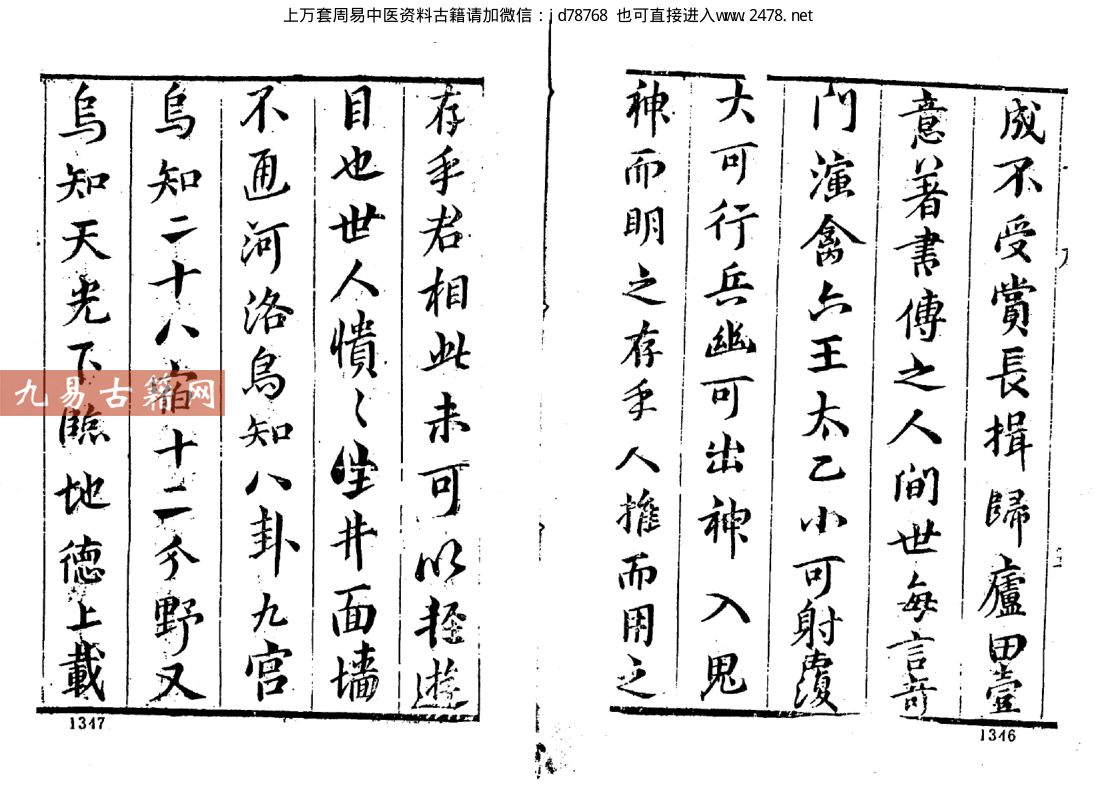 上万套周易中医资料古籍请加微信：jd78768 也可直接进入www.2478.net
成不受賞長揖歸廬田壹
意著書傳之人间世每言奇
门演禽六王太乙小可射覆
大可行兵幽可出神入鬼
神而明之存乎人推而用之
1346
存乎君相此未可以轻遊
目也世人憒々坐井面墻
不通河洛烏知八卦九宫
烏知二十八宿十二分野又
烏知天光下臨地德上載
1347
九易古籍网